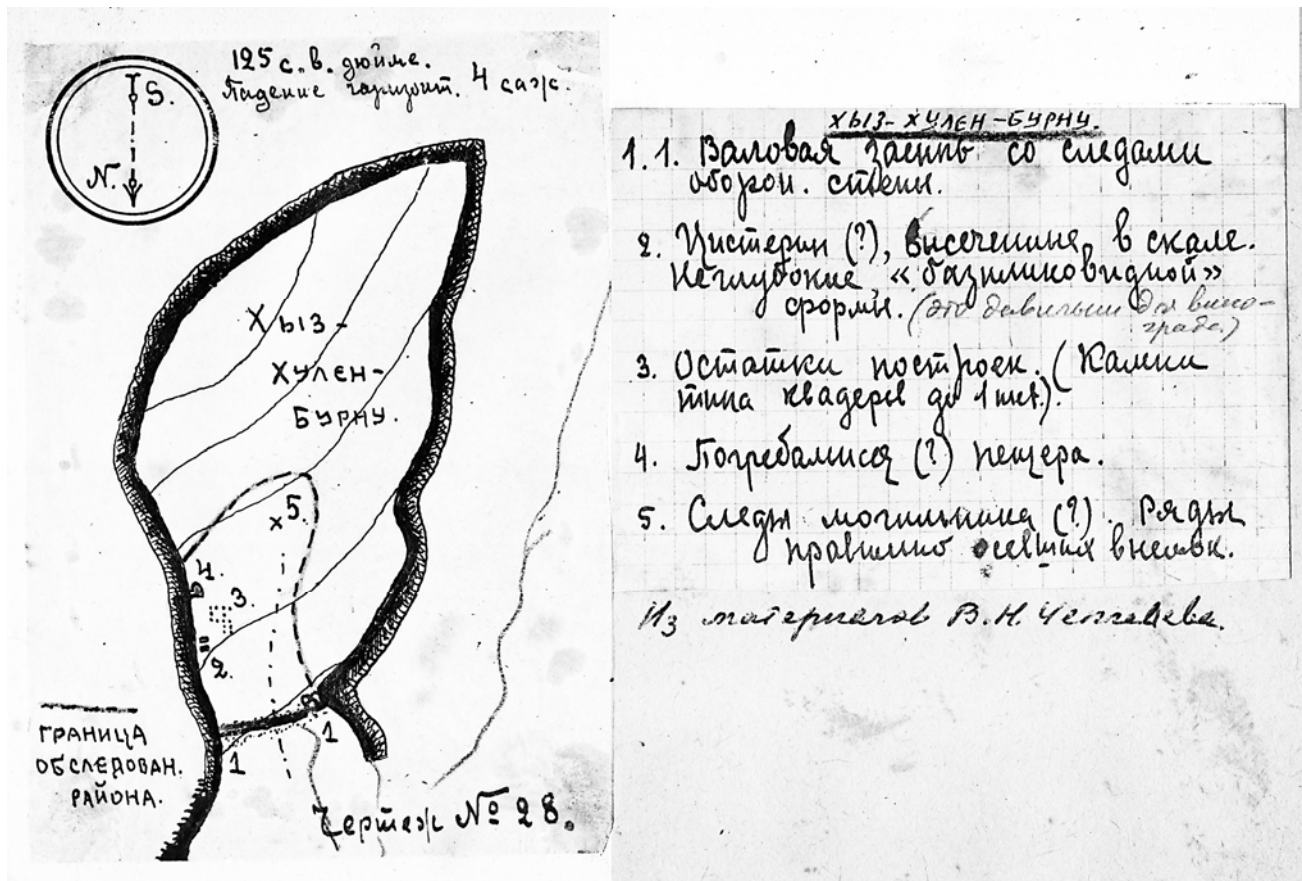 125 с. в. дюйме.
Падение горизонт. 4 саж.
S.
N.
Хыз-
Хулен-
Бурну.
5.
4.
3.
2.
1
1
ГРАНИЦА
ОБСЛЕДОВАН.
РАЙОНА.
Чертеж № 28.
ХЫЗ-ХУЛЕН-БУРНУ.
1. 1. Валовая засыпь со следами
оборон. стены.
2. Цистерны (?), высеченные в скале.
Неглубокие, «базиликовидной»
формы. (это давильни для вино-
града.)
3. Остатки построек. (Камни
типа квадеров до 1 mt.).
4. Погребальная (?) пещера.
5. Следы могильника (?). Ряды
правильно осевших
Из материалов В.Н. Чепелева.